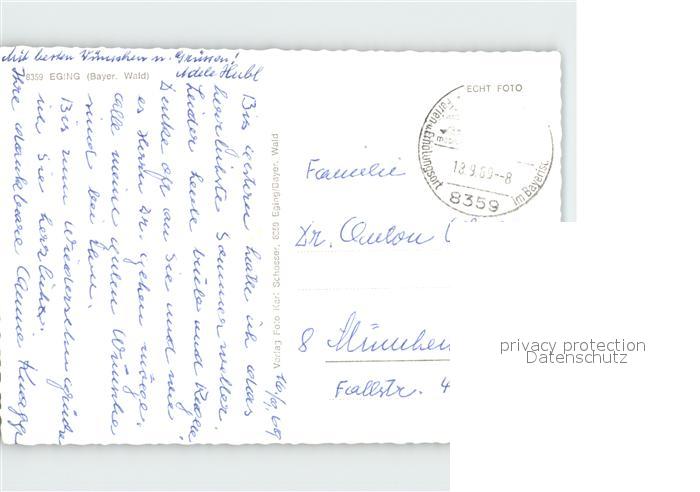 Mit besten Wünschen u. Grüssen!
Adele Hubl
8359 EGING (Bayer. Wald)
Bis gestern hatte ich das
herrlichste Sommerwetter.
Leider heute trübe und Regen
Denke oft an Sie und wie
es Herrn Dr. gehen möge.
alle meine guten Wünsche
sind bei Ihm.
Bis zum Wiedersehn grüße
ich Sie herzlichst.
Ihre dankbare Annie Knapp
16/9. 69
Verlag Foto Karl Schosser, 8359 Eging/Bayer. Wald
ECHT FOTO
Ferien-u.Erholungsort
18.9.69--8
im Bayerisc
8359
Familie
Dr. Anton
8 München
Fallstr. 4
privacy protection
Datenschutz